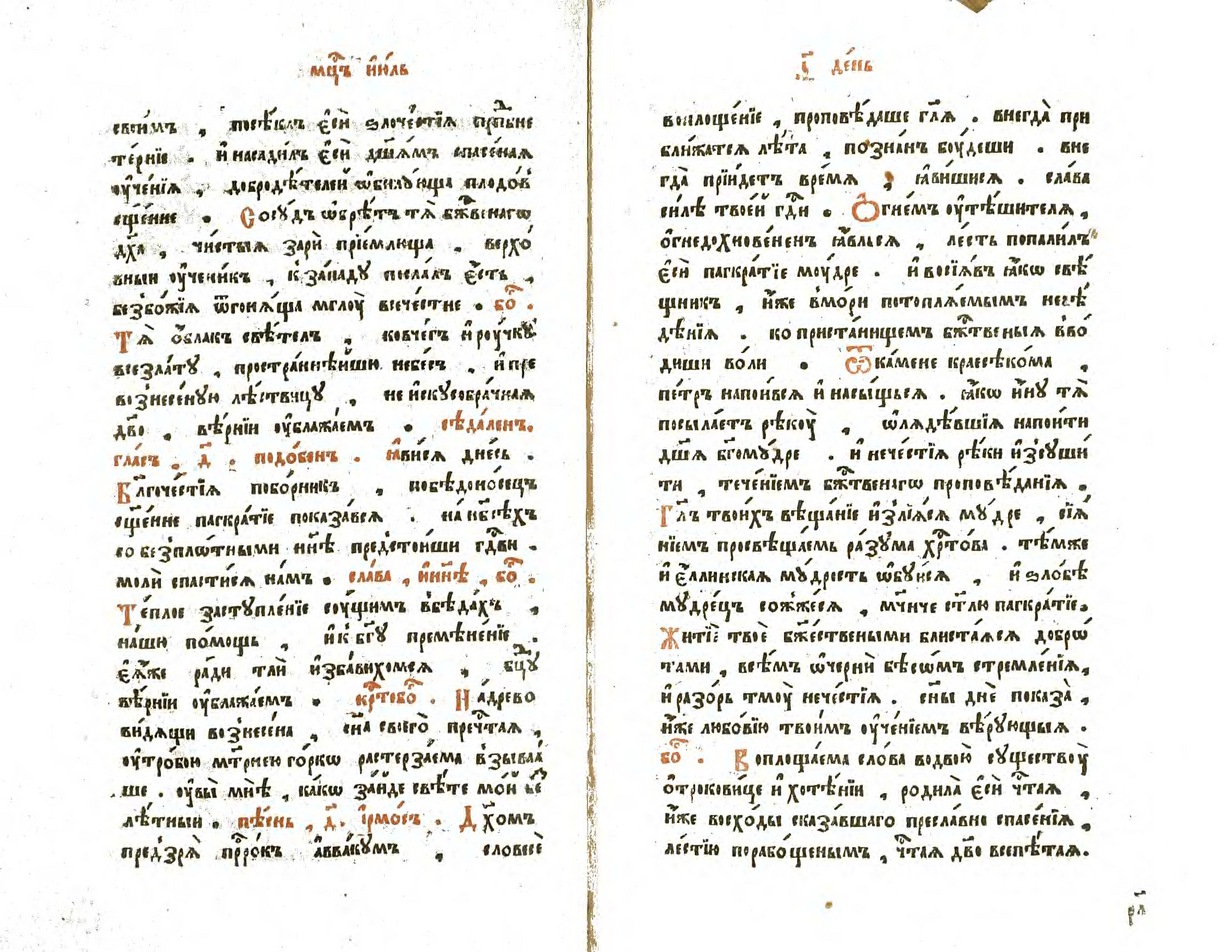 мцⷭ҇ъ і҆ю́ль
свои́мъ , посѣ́клъ є҆сѝ ѕлоче́стїѧ прпⷣбне
те́рнїе . и҆ насади́лъ є҆сѝ дш҃а́мъ спасе́наѧ
ᲂу҆че́нїѧ , добродѣ́телей ѡ҆би́лующа плодо́въ
сщ҃е́нне . Сосу́дъ ѡ҆брѣ́тъ тѧ̀ бжⷭ҇венагѡ
дх҃а , чи́стыѧ зарѝ прїе́млюща , верхо́
вныи ᲂу҆ченикъ , к за́паду посла́лъ є҆́сть ,
безбо́жїѧ ѿгонѧ́ща мглоу̀ всече́стне . бо .
Тѧ̀ ѡ҆́блакъ свѣ́телъ , ковче́гъ и҆ роу́чку
всезла́ту , простра́ннѣйшю небе́съ , и҆ пре
вознесе́ную лѣ́ствицу , не и҆скусобра́чнаѧ
дв҃о , вѣ́рнїи ᲂу҆блажа́емъ . сѣда́ленъ.
гла́съ . д҃ . подо́бенъ . ꙗ҆ви́сѧ дне́сь .
Бл҃гоче́стїѧ побо́рникъ , побѣдоно́сецъ
сщ҃е́нне пагкра́тїе показа́всѧ . на нб҃сѣ́хъ
со безпло́тными нн҃ѣ предстои́ши гдⷭ҇ви .
молѝ спасти́сѧ на́мъ . сла́ва , и҆ нн҃ѣ , бо .
Те́плое заступле́нїе со́ущимъ в бѣда́хъ ,
на́шю по́мощь , и҆ к бг҃у премѣне́нїе .
є҆ѧ́же ради тлѝ и҆зба́вихомсѧ , бцⷣу
вѣ́рнїи ᲂу҆блажа́емъ . крⷭ҇тобо . На дре́во
ви́дѧщи вознесе́на , сн҃а своего̀ пречⷭ҇таѧ ,
ᲂу҆тро́бою мт҃рнею го́ркѡ растерза́ема взыва́а
ше . ᲂу҆вы̀ мнѣ̀ , ка́кѡ за́йде свѣ́те мо́й бе
лѣ́тныи . пѣ́снь , д҃. і҆рмо́съ . Дх҃омъ
предзрѧ̀ прⷪ҇ро́къ а҆ввакꙋ́мъ , словесѐ
і҃ де́нь
воплоще́нїе , проповѣ́даше гл҃ѧ . внегда̀ при
бли́жатсѧ лѣ́та , по́знанъ бꙋ́деши . вне
гда̀ прїи́детъ вре́мѧ , ꙗ҆ви́шисѧ . сла́ва
си́лѣ твое́й гдⷭ҇и . Ѻ҆гне́мъ ᲂу҆тѣ́шителѧ ,
ѻ҆гнедохнове́ненъ ꙗ҆влье́ѧ , ле́сть попали́лъ
є҆сѝ пагкра́тїе моу́дре . и҆ восїѧ́въ ꙗ҆́кѡ свѣ́
щникъ , и҆́же в мо́ри потоплѧ́емымъ невѣ́
дѣнїѧ . ко приста́нищемъ бжⷭ҇твеныѧ вво́
диши во́ли . Ѿ ка́мене краесѣ́кома ,
пе́тръ напо́ивсѧ и҆ насы́щьсѧ . ꙗ҆́кѡ и҆́ну тѧ̀
посыла́етъ рѣкоу̀ , ѡ҆лѧдѣ́вшїѧ напои́ти
дш҃ѧ бг҃омꙋ́дре . и҆ нече́стїѧ рѣ́ки и҆зсуши́
ти , тече́нїемъ бжⷭ҇твенагѡ проповѣ́данїѧ .
Гл҃ъ твои́хъ вѣща́нїе и҆злїѧ́сѧ му́дре , сїѧ́
нїемъ просвѣща́емь ра́зума хрⷭ҇то́ва . тѣ́мже
и҆ є҆́ллинскаѧ му́дрость ѡ҆бу́ѧсѧ , и҆ ѕло́бѣ
мудре́цъ сожже́сѧ , мч҃нче ст҃лю пагкра́тїе.
Житїѐ твоѐ бжⷭ҇ествеными блиста́ѧсѧ добро́
тами , всѣ́мъ ѡ҆чернѝ бѣсо́мъ стремле́нїѧ,
и҆ разо́рь тмоу̀ нече́стїѧ . сн҃ы днѐ показа̀ ,
и҆́же любо́вїю твои́мъ ᲂу҆че́нїемъ вѣ́рующыѧ .
бо . Воплоща́ема сло́ва водвою̀ сꙋ́ществоу̀
ѻ҆трокови́це и҆ хотѣ́нїи , родила̀ є҆сѝ чⷭ҇таѧ ,
и҆́же восхо́ды сказа́вшаго пресла́вно спасе́нїѧ ,
ле́стїю порабо́щенымъ , чⷭ҇таѧ дв҃о всепѣ́таѧ.
рл҃